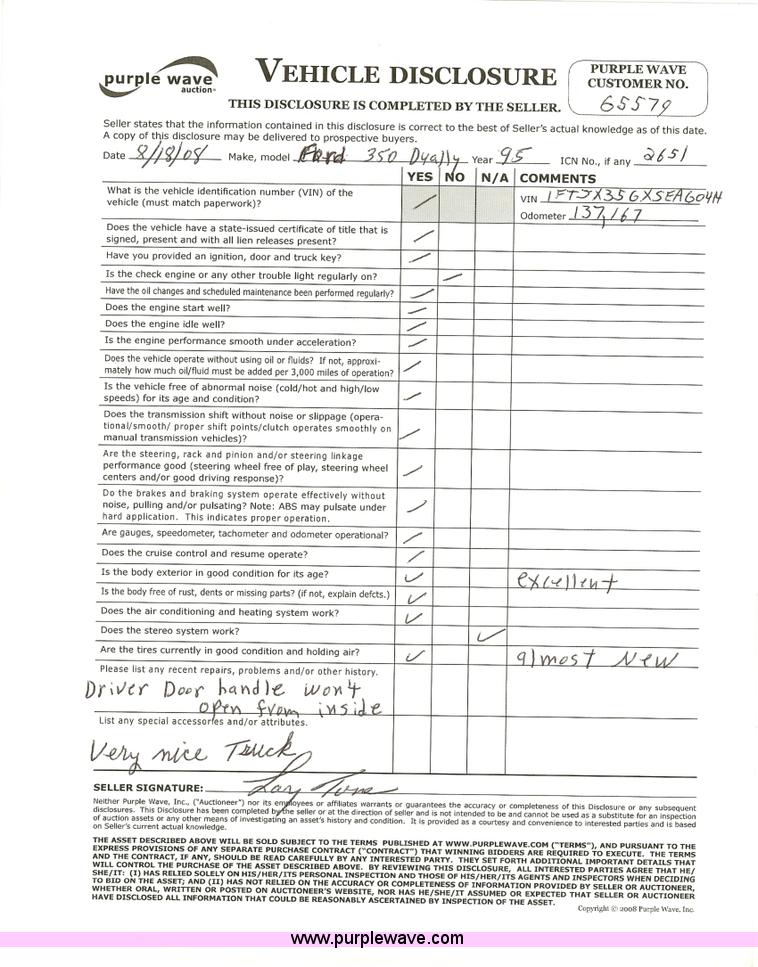 purple wave
auction™
VEHICLE DISCLOSURE
THIS DISCLOSURE IS COMPLETED BY THE SELLER.
PURPLE WAVE
CUSTOMER NO.
65579
Seller states that the information contained in this disclosure is correct to the best of Seller's actual knowledge as of this date.
A copy of this disclosure may be delivered to prospective buyers.
Date 8/18/08 Make, model Ford 350 Dually Year 95 ICN No., if any 2651
YES NO N/A COMMENTS
What is the vehicle identification number (VIN) of the
vehicle (must match paperwork)?
VIN
Odometer 137,167
Does the vehicle have a state-issued certificate of title that is
signed, present and with all lien releases present?
Have you provided an ignition, door and truck key?
Is the check engine or any other trouble light regularly on?
Have the oil changes and scheduled maintenance been performed regularly?
Does the engine start well?
Does the engine idle well?
Is the engine performance smooth under acceleration?
Does the vehicle operate without using oil or fluids? If not, approxi-
mately how much oil/fluid must be added per 3,000 miles of operation?
Is the vehicle free of abnormal noise (cold/hot and high/low
speeds) for its age and condition?
Does the transmission shift without noise or slippage (opera-
tional/smooth/ proper shift points/clutch operates smoothly on
manual transmission vehicles)?
Are the steering, rack and pinion and/or steering linkage
performance good (steering wheel free of play, steering wheel
centers and/or good driving response)?
Do the brakes and braking system operate effectively without
noise, pulling and/or pulsating? Note: ABS may pulsate under
hard application. This indicates proper operation.
Are gauges, speedometer, tachometer and odometer operational?
Does the cruise control and resume operate?
Is the body exterior in good condition for its age?
excellent
Is the body free of rust, dents or missing parts? (if not, explain defcts.)
Does the air conditioning and heating system work?
Does the stereo system work?
Are the tires currently in good condition and holding air?
almost New
Please list any recent repairs, problems and/or other history.
Driver Door handle won't
open from inside
List any special accessories and/or attributes.
Very nice Truck
SELLER SIGNATURE:
Neither Purple Wave, Inc., ("Auctioneer") nor its employees or affiliates warrants or guarantees the accuracy or completeness of this Disclosure or any subsequent
disclosures. This Disclosure has been completed by the seller or at the direction of seller and is not intended to be and cannot be used as a substitute for an inspection
of auction assets or any other means of investigating an asset's history and condition. It is provided as a courtesy and convenience to interested parties and is based
on Seller's current actual knowledge.
THE ASSET DESCRIBED ABOVE WILL BE SOLD SUBJECT TO THE TERMS PUBLISHED AT WWW.PURPLEWAVE.COM ("TERMS"), AND PURSUANT TO THE
EXPRESS PROVISIONS OF ANY SEPARATE PURCHASE CONTRACT ("CONTRACT") THAT WINNING BIDDERS ARE REQUIRED TO EXECUTE. THE TERMS
AND THE CONTRACT, IF ANY, SHOULD BE READ CAREFULLY BY ANY INTERESTED PARTY. THEY SET FORTH ADDITIONAL IMPORTANT DETAILS THAT
WILL CONTROL THE PURCHASE OF THE ASSET DESCRIBED ABOVE. BY REVIEWING THIS DISCLOSURE, ALL INTERESTED PARTIES AGREE THAT HE/
SHE/IT: (I) HAS RELIED SOLELY ON HIS/HER/ITS PERSONAL INSPECTION AND THOSE OF HIS/HER/ITS AGENTS AND INSPECTORS WHEN DECIDING
TO BID ON THE ASSET; AND (II) HAS NOT RELIED ON THE ACCURACY OR COMPLETENESS OF INFORMATION PROVIDED BY SELLER OR AUCTIONEER,
WHETHER ORAL, WRITTEN OR POSTED ON AUCTIONEER'S WEBSITE, NOR HAS HE/SHE/IT ASSUMED OR EXPECTED THAT SELLER OR AUCTIONEER
HAVE DISCLOSED ALL INFORMATION THAT COULD BE REASONABLY ASCERTAINED BY INSPECTION OF THE ASSET.
Copyright © 2008 Purple Wave, Inc.
www.purplewave.com